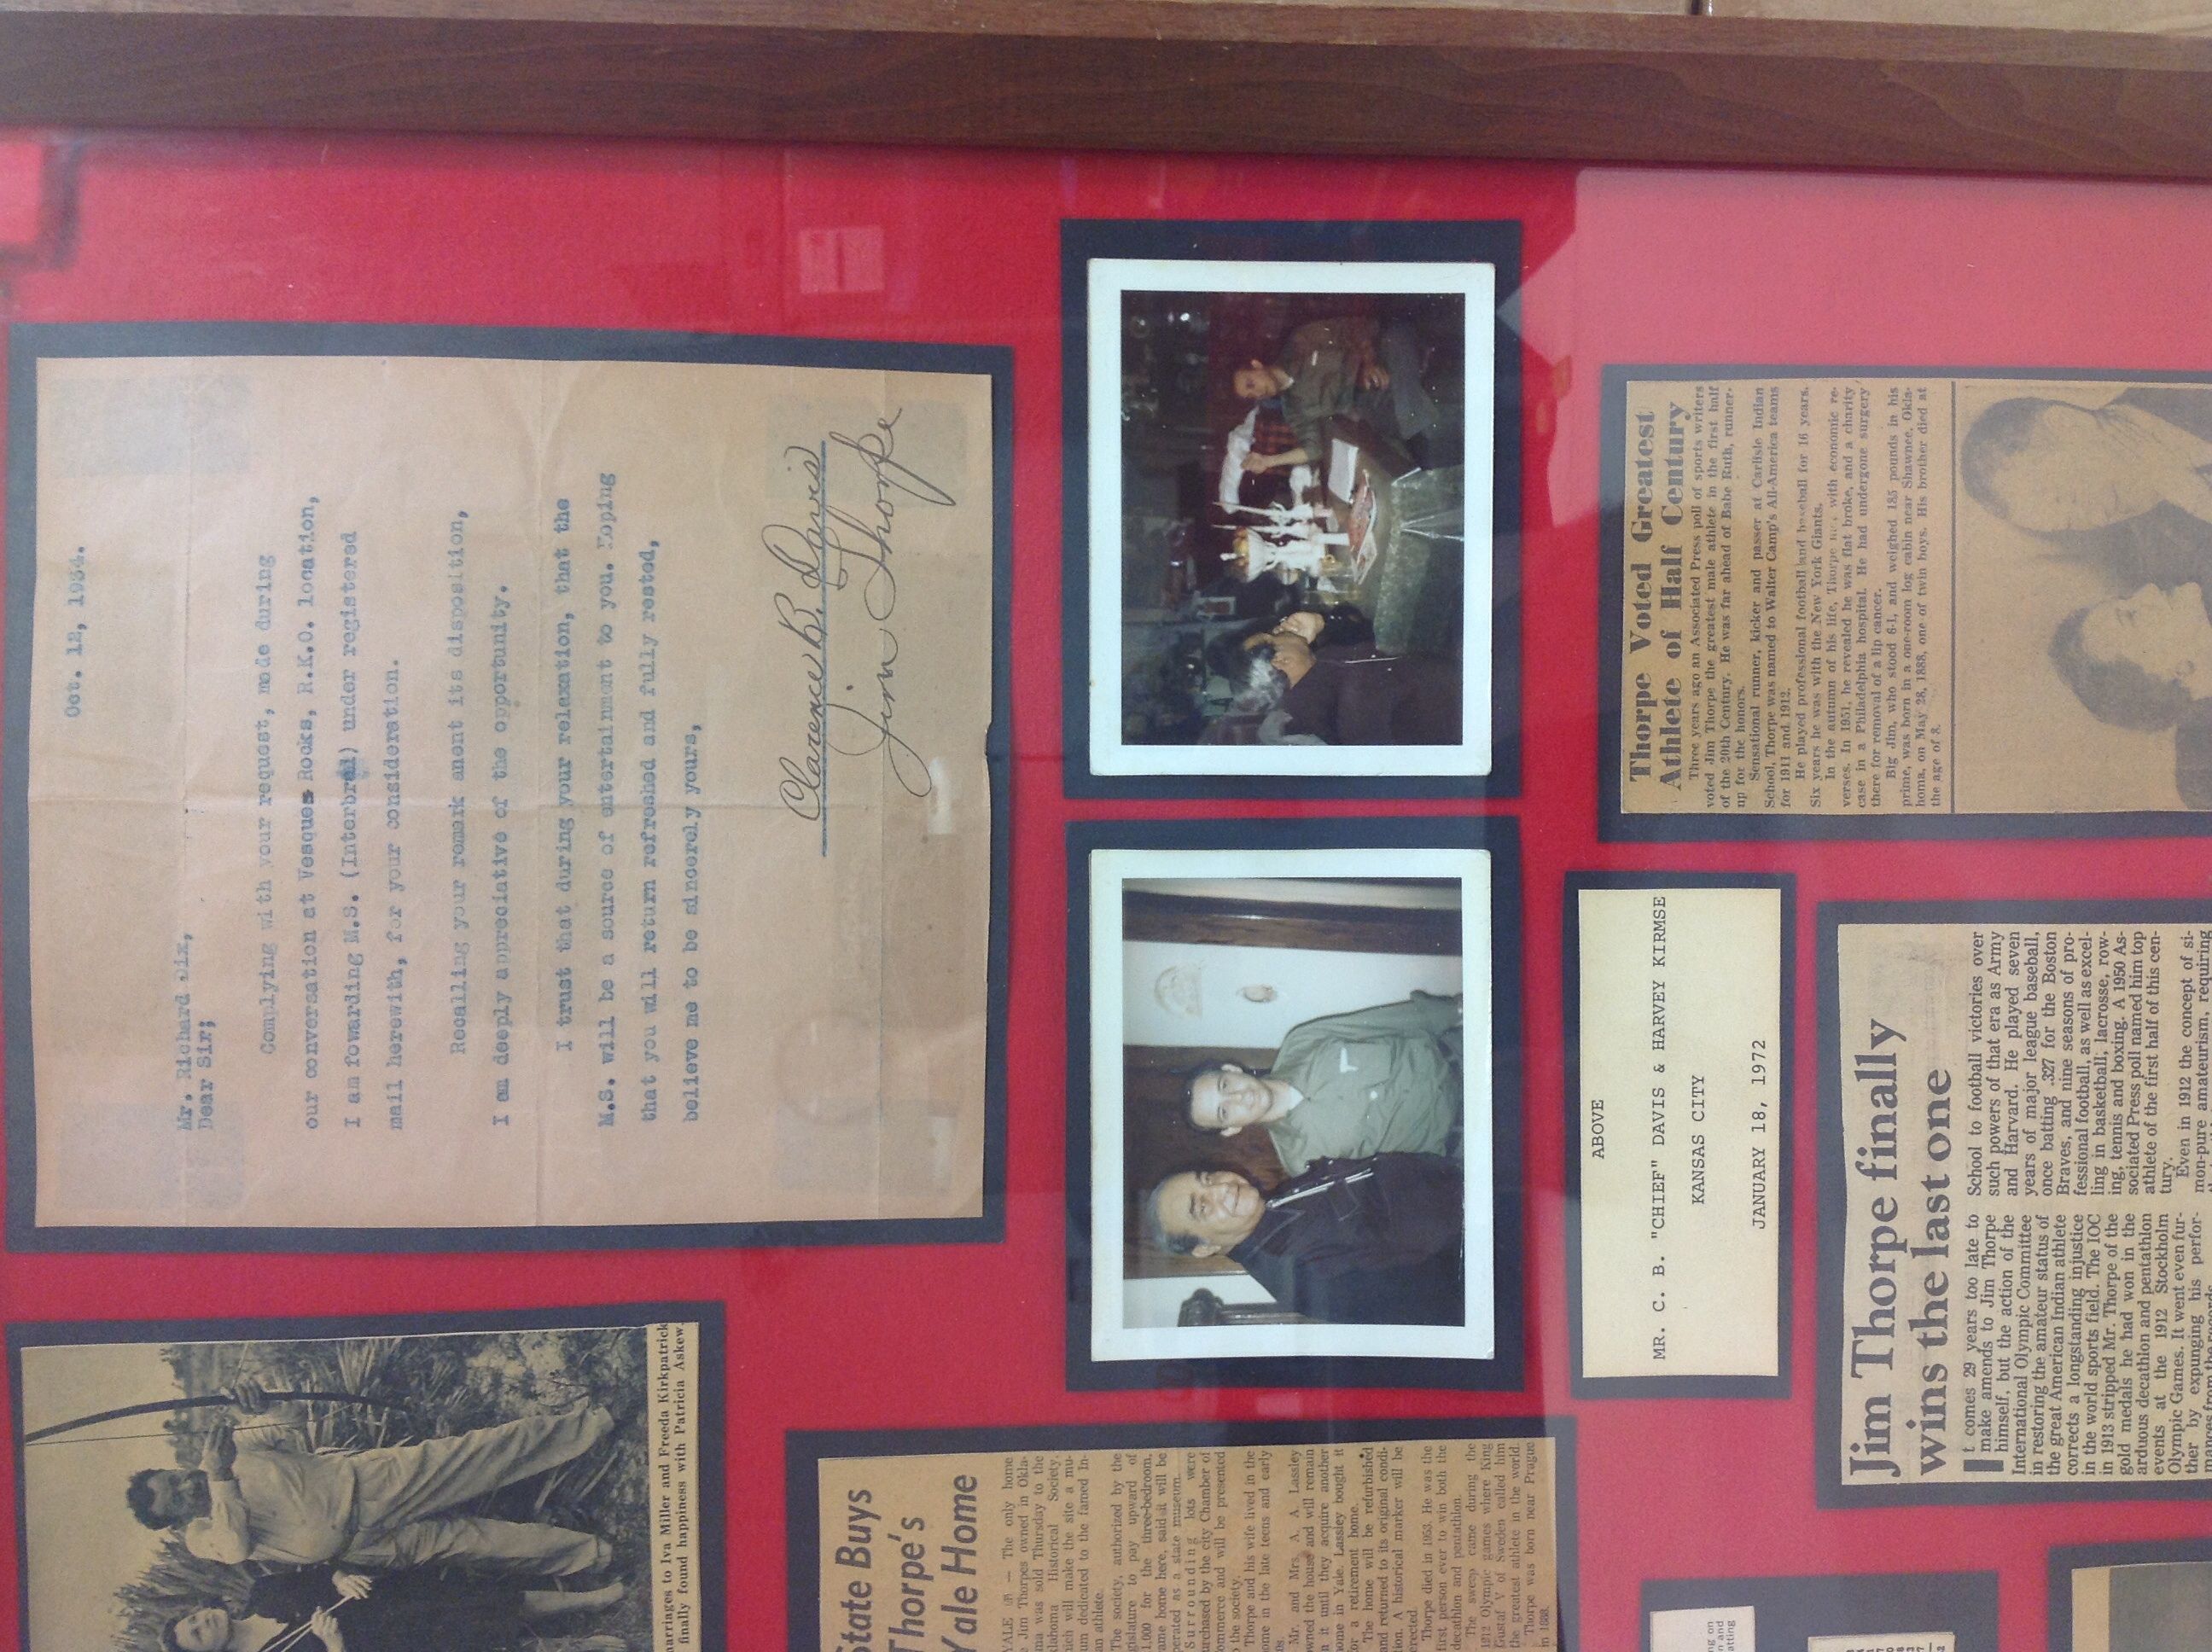 Oct. 12, 1934.
Mr. Richard Dix,
Dear Sir;
Complying with your request, made during
our conversation at Vesques Rocks, R.K.O. location,
I am fowarding M.S. (Interbred) under registered
mail herewith, for your consideration.
Recalling your remark anent its disposition,
I am deeply appreciative of the opportunity.
I trust that during your relaxation, that the
M.S. will be a source of entertainment to you. Hoping
that you will return refreshed and fully rested,
believe me to be sincerely yours,
Clarence B. Davis
Jim Thorpe
marriages to Iva Miller and Freeda Kirkpatrick
finally found happiness with Patricia Askew.
State Buys
Thorpe's
Yale Home
YALE — The only home
Jim Thorpes owned in Okla-
was sold Thursday to the
Historical Society,
will make the site a mu-
dedicated to the famed In-
athlete.
The society, authorized by the
to pay upward of
for the three-bedroom,
home here, said it will be
as a state museum.
Surrounding lots were
by the city Chamber of
and will be presented
the society.
Thorpe and his wife lived in the
in the late teens and early
Mr. and Mrs. A. A. Lassley
the house and will remain
it until they acquire another
in Yale. Lassley bought it
for a retirement home.
The home will be refurbished
and returned to its original condi-
A historical marker will be
Thorpe died in 1953. He was the
first person ever to win both the
decathlon and pentathlon.
The sweep came during the
1912 Olympic games where King
Gustaf V of Sweden called him
the greatest athlete in the world.
Thorpe was born near Prague
in 1888.
ABOVE
MR. C. B. "CHIEF" DAVIS & HARVEY KIRMSE
KANSAS CITY
JANUARY 18, 1972
Thorpe Voted Greatest
Athlete of Half Century
Three years ago an Associated Press poll of sports writers
voted Jim Thorpe the greatest male athlete in the first half
of the 20th Century. He was far ahead of Babe Ruth, runner-
up for the honors.
Sensational runner, kicker and passer at Carlisle Indian
School, Thorpe was named to Walter Camp's All-America teams
for 1911 and 1912.
He played professional football and baseball for 16 years.
Six years he was with the New York Giants.
In the autumn of his life, Thorpe with economic re-
verses. In 1951, he revealed he was flat broke, and a charity
case in a Philadelphia hospital. He had undergone surgery
there for removal of a lip cancer.
Big Jim, who stood 6-1, and weighed 185 pounds in his
prime, was born in a one-room log cabin near Shawnee, Okla-
homa, on May 28, 1888, one of twin boys. His brother died at
the age of 8.
Jim Thorpe finally
wins the last one
It comes 29 years too late to
make amends to Jim Thorpe
himself, but the action of the
International Olympic Committee
in restoring the amateur status of
the great American Indian athlete
corrects a longstanding injustice
in the world sports field. The IOC
in 1913 stripped Mr. Thorpe of the
gold medals he had won in the
arduous decathlon and pentathlon
events at the 1912 Stockholm
Olympic Games. It went even fur-
ther by expunging his perfor-
mances from the records.
School to football victories over
such powers of that era as Army
and Harvard. He played seven
years of major league baseball,
once batting .327 for the Boston
Braves, and nine seasons of pro-
fessional football, as well as excel-
ling in basketball, lacrosse, row-
ing, tennis and boxing. A 1950 As-
sociated Press poll named him top
athlete of the first half of this cen-
tury.
Even in 1912 the concept of si-
mon-pure amateurism, requiring